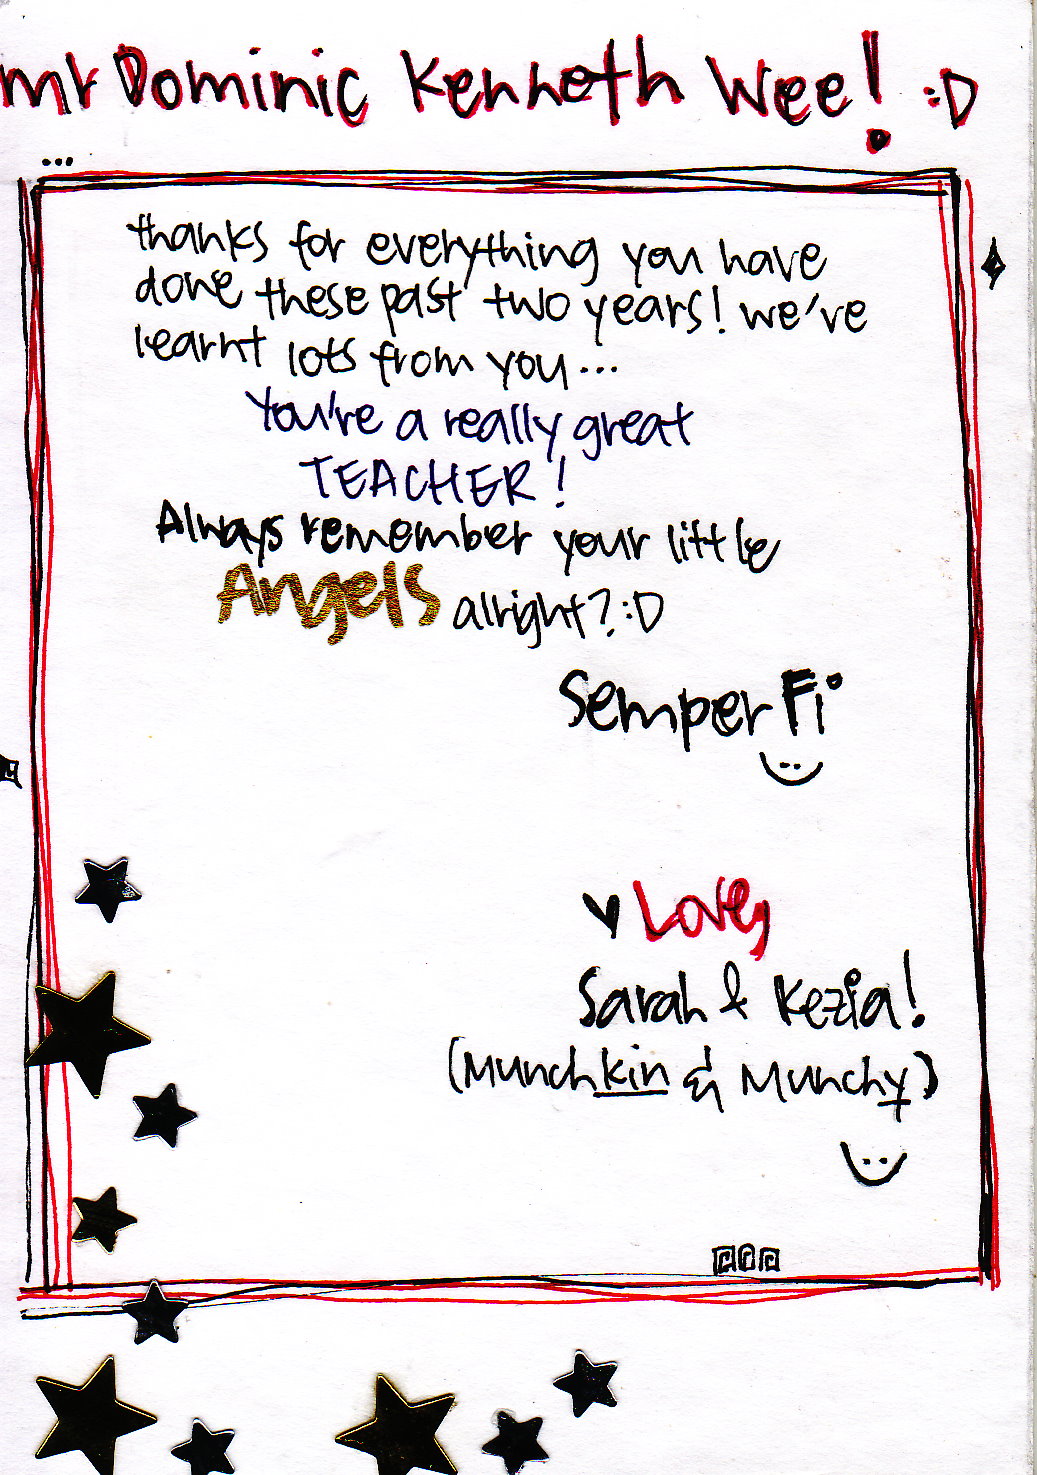 mr Dominic Kenneth Wee! :D
...
thanks for everything you have
done these past two years! we've
learnt lots from you...
You're a really great
TEACHER!
Always remember your little
Angels alright? :D
Semper Fi
♥ Love,
Sarah & Kezia!
(Munchkin & Munchy)